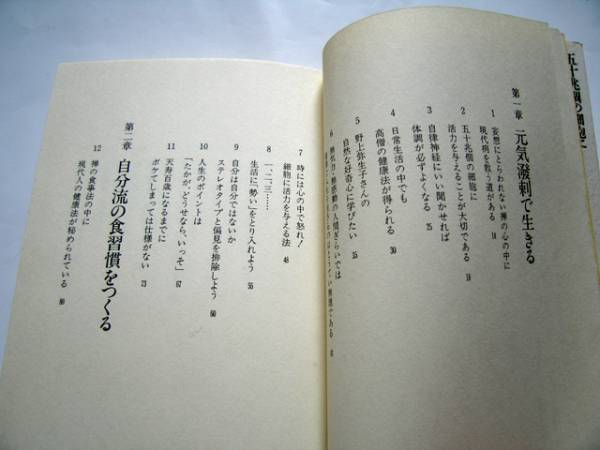 五十兆個の細胞に
第一章　元気溌剌で生きる
1　妄想にとらわれない禅の心の中に
現代病を救う道がある　14
2　五十兆個の細胞に
活力を与えることが大切である　19
3　自律神経にいい聞かせれば
体調が必ずよくなる　25
4　日常生活の中でも
高僧の健康法が得られる　30
5　野上弥生子さんの
自然な好奇心に学びたい　35
6　無気力・無感動の人間ぎらいでは
7　時には心の中で怒れ！
細胞に活力を与える法　45
8　一、二、三……
生活に「勢い」をとり入れよう　55
9　自分は自分ではないか
ステレオタイプと偏見を排除しよう
10　人生のポイントは
「たかが、どうせなら、いっそ」　67
11　天寿百歳になるまでに
ボケてしまっては仕様がない　73
第二章　自分流の食習慣をつくる
12　禅の食事法の中に
現代人の健康法が秘められている　80